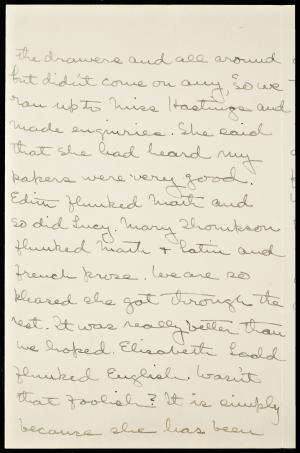 the drawers and all around
but didn't come on any, so we
ran up to Miss Hastings and
made enquiries. She said
that she had heard my
papers were very good.
Edith flunked Math and
so did Lucy. Mary Thompson
flunked Math + Latin and
French prose. We are so
pleased she got through the
rest. It was really better than
we hoped. Elisabeth Ladd
flunked English. Wasn't
that foolish? It is simply
because she has been